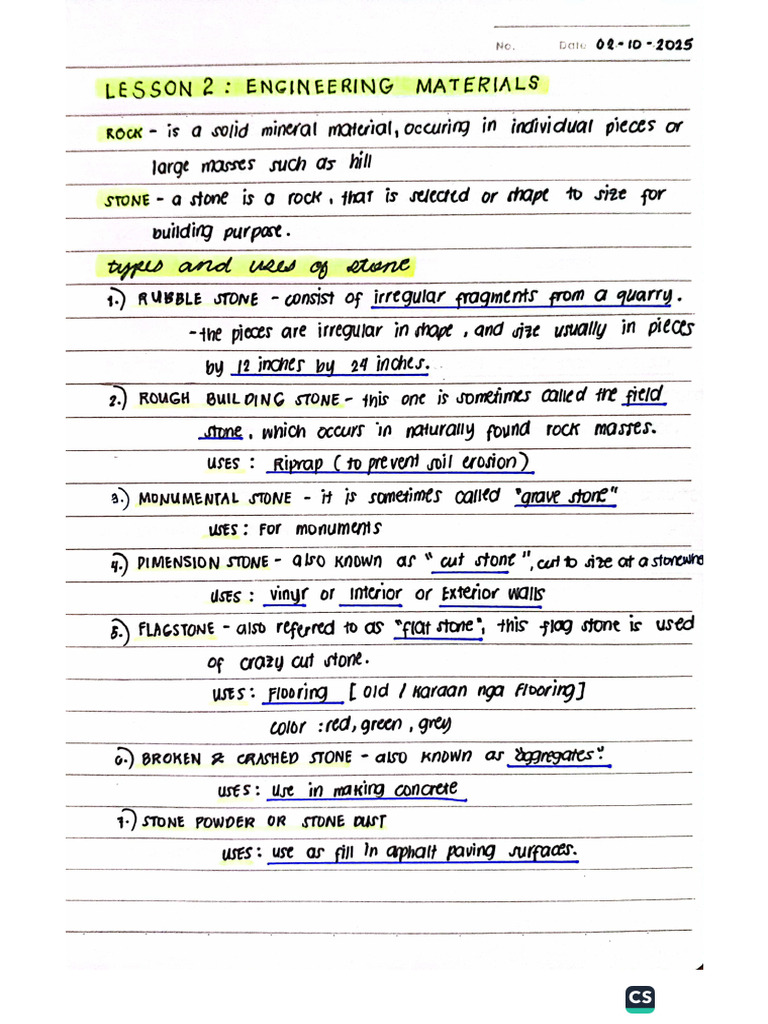 No. Date 02-10-2025
LESSON 2: ENGINEERING MATERIALS
ROCK - is a solid mineral material, occuring in individual pieces or
large masses such as hill
STONE - a stone is a rock, that is selected or shape to size for
building purpose.
types and uses of stone
1.) RUBBLE STONE - consist of irregular fragments from a quarry.
- the pieces are irregular in shape, and size usually in pieces
by 12 inches by 24 inches.
2.) ROUGH BUILDING STONE - this one is sometimes called the field
stone, which occurs in naturally found rock masses.
USES: Riprap (to prevent soil erosion)
3.) MONUMENTAL STONE - it is sometimes called "grave stone"
USES: For monuments
4.) DIMENSION STONE - also known as "cut stone", cut to size at a
USES: vinyr or Interior or Exterior walls
5.) FLAGSTONE - also referred to as "flat stone", this flag stone is used
of crazy cut stone.
USES: Flooring [old / karaan nga flooring]
color: red, green, grey
6.) BROKEN & CRASHED STONE - also known as "aggregates".
USES: use in making concrete
7.) STONE POWDER OR STONE DUST
USES: use as fill in asphalt paving surfaces.
CS